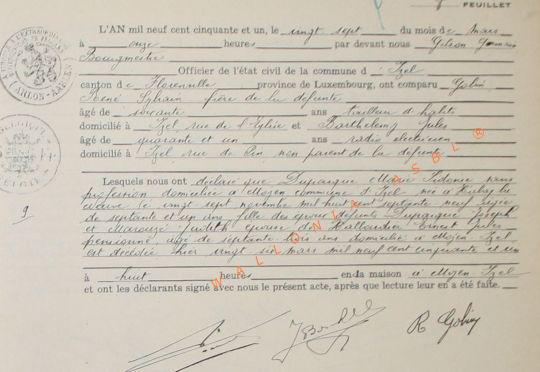 FEUILLET
L'AN mil neuf cent cinquante et un, le vingt sept du mois de mars
à onze heures par devant nous Gilson
Bourgmestre
Officier de l'état civil de la commune d' Izel
canton de Florenville, province de Luxembourg, ont comparu Gobin
René Sylvain frère de la défunte
âgé de soixante ans tailleur d'habits
domicilié à Izel rue de l'Eglise et Barthelemy Jules
âgé de quarante et un ans radio électricien
domicilié à Izel rue de Pin non parent de la défunte
Lesquels nous ont déclaré que Duparque Marie sans
profession domiciliée à Moyen commune d'Izel née à
le vingt sept novembre mil huit cent septante neuf âgée
de septante et un ans, fille des époux défunts Duparque Joseph
et Judith épouse de Ernest Jules
pensionné, âgé de septante trois ans domicilié à Moyen Izel
est décédée hier vingt six mars mil neuf cent cinquante et un
à huit heures en da maison à Moyen Izel
et ont les déclarants signé avec nous le présent acte, après que lecture leur en a été faite.
R Gobin
9
WALLONIA ASBL ®